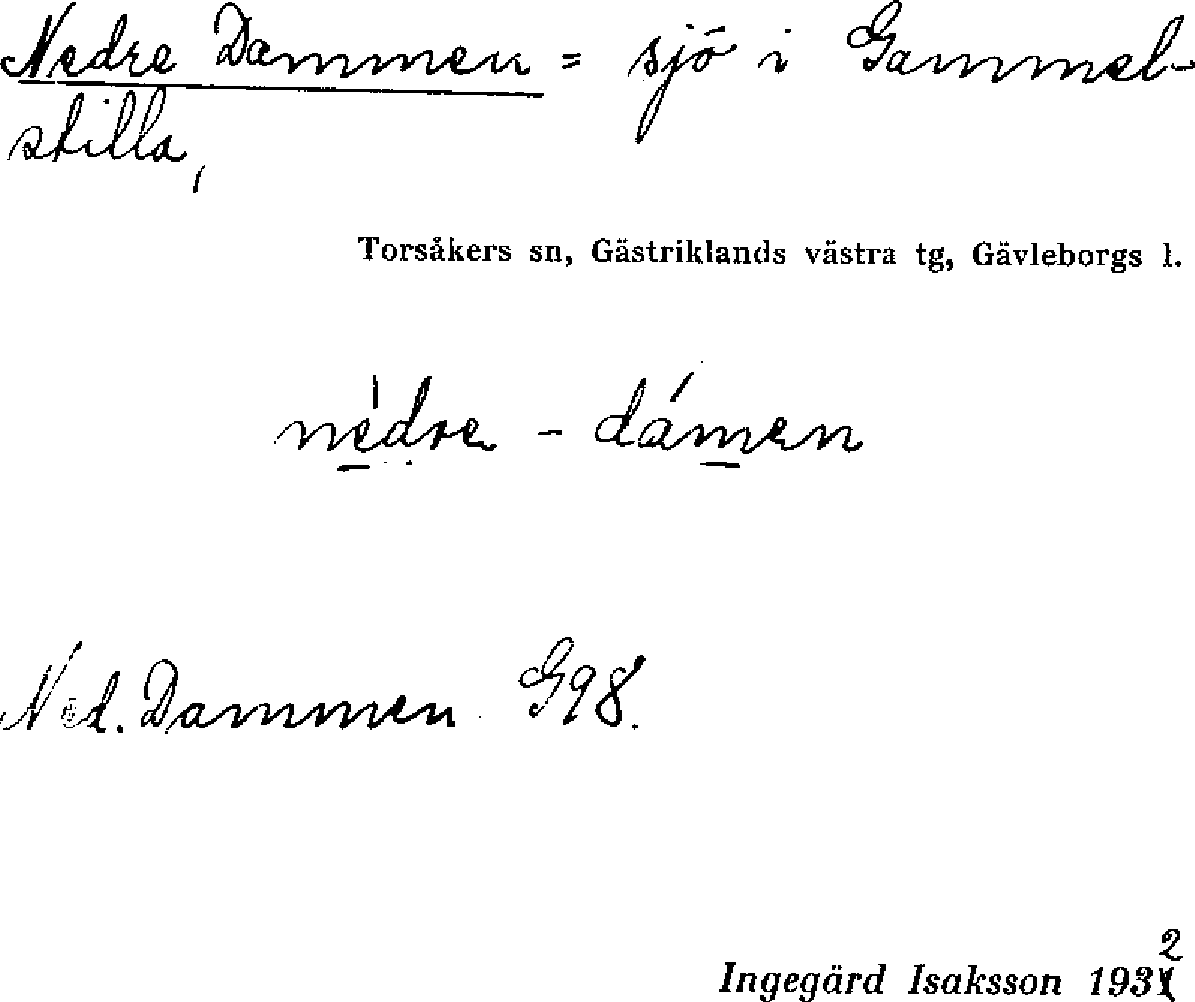 Nedre Dammen = sjö i Gammel-
stilla,
Torsåkers sn, Gästriklands västra tg, Gävleborgs l.
nédre - dámen
Ned. Dammen G98.
Ingegärd Isaksson 1932